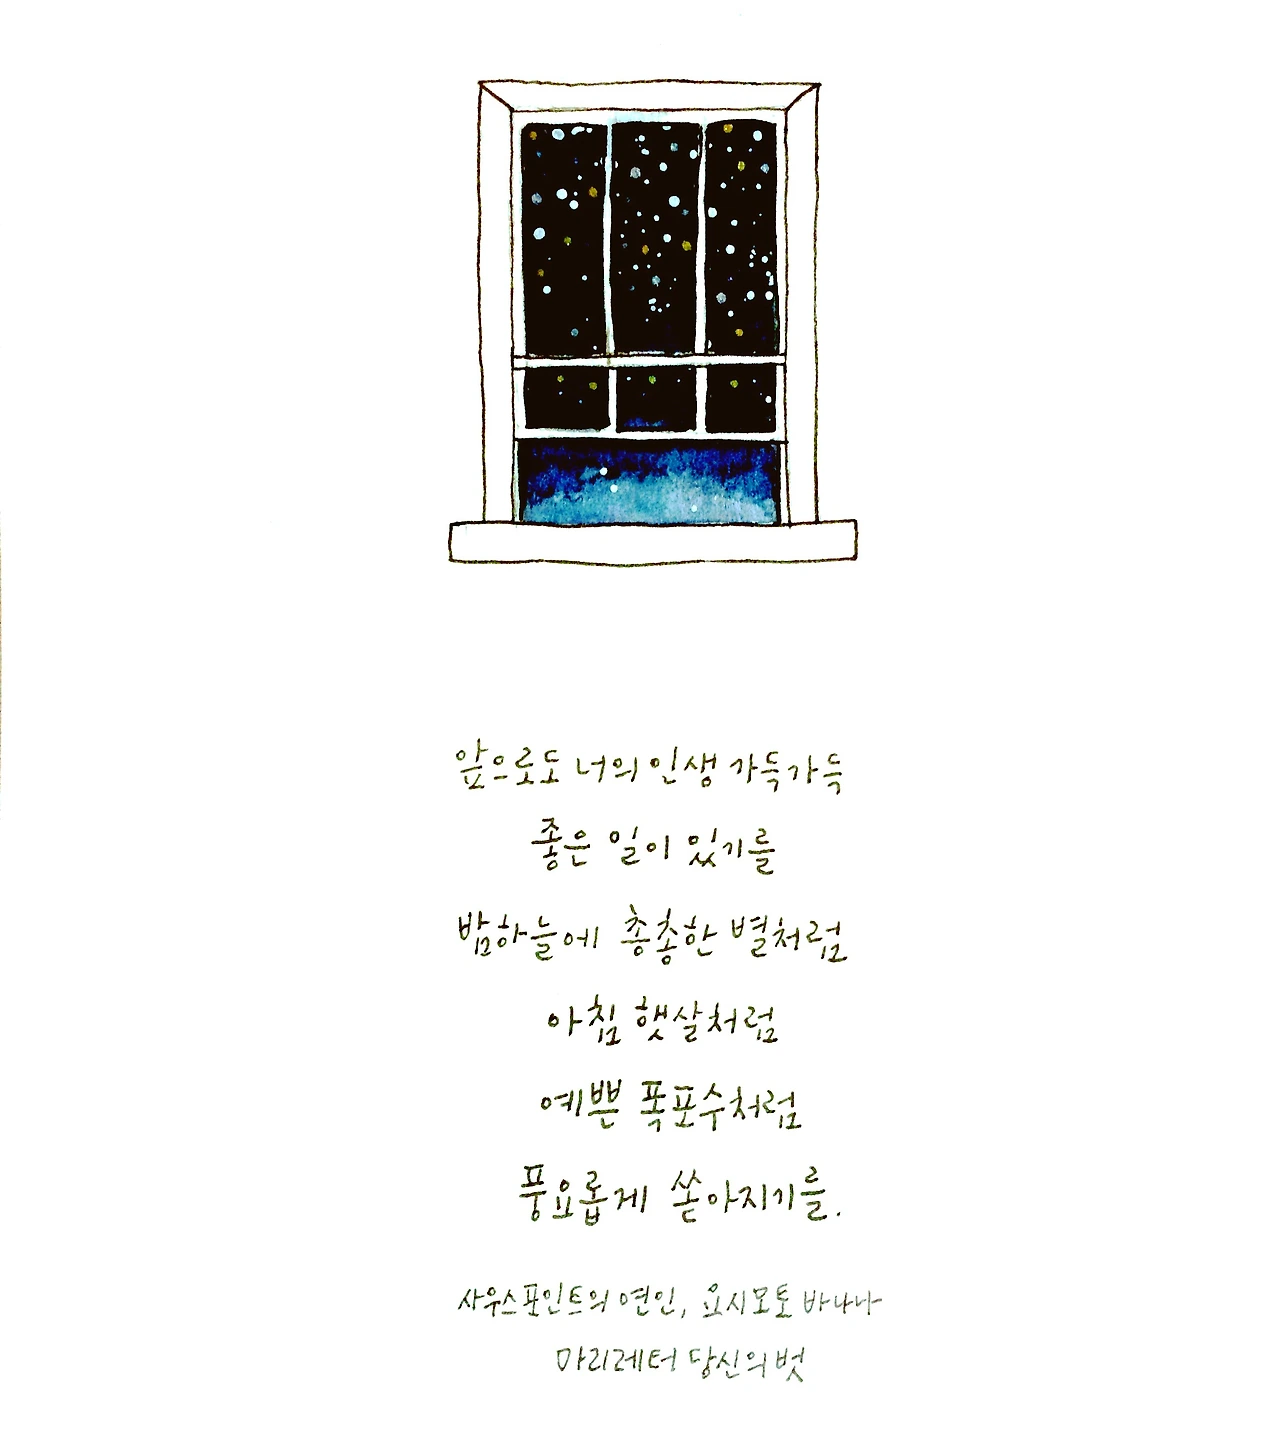 앞으로도 너의 인생 가득가득
좋은 일이 있기를
밤하늘에 총총한 별처럼
아침 햇살처럼
예쁜 폭포수처럼
풍요롭게 쏟아지기를.
사우스포인트의 연인, 요시모토 바나나
마리레터 당신의 벗